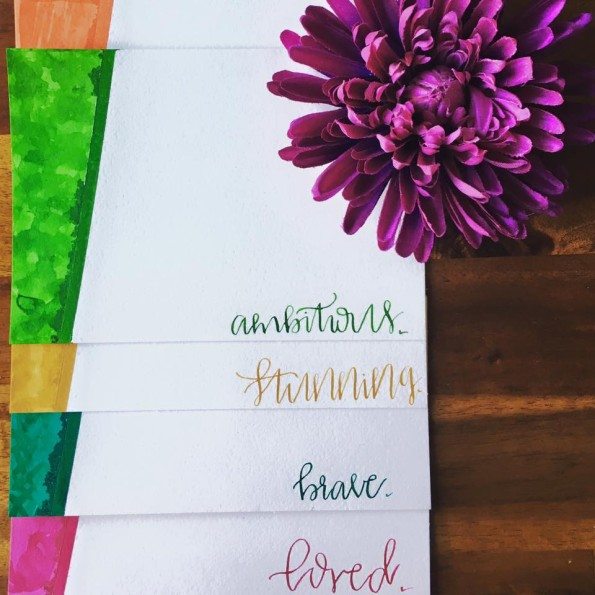 ambitious.
stunning.
brave.
loved.